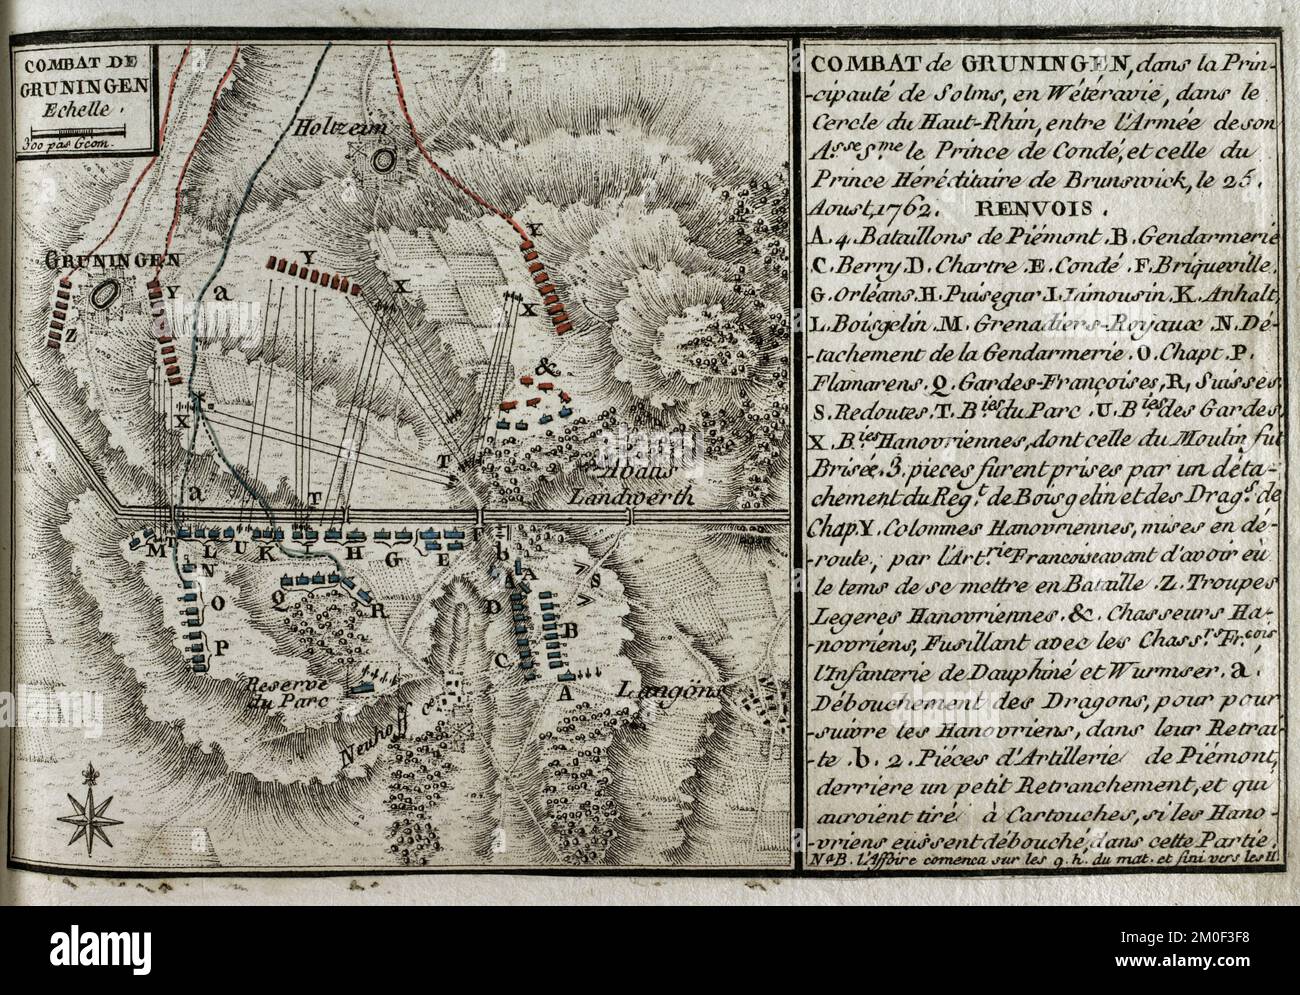 COMBAT DE
GRUNINGEN
Echelle.
300 pas Géom.
Holtzeim
GRUNINGEN
Z
Y
a
Y
X
Y
X
&
X
T
Abans
Landwerth
a
T
M
T
L
U
K
I
H
G
E
F
b
N
O
P
Q
R
A
A
S
D
B
C
A
Reserve
du Parc
Neuhoff
Langöns
COMBAT de GRUNINGEN, dans la Prin-
-cipauté de Solms, en Wétéravie, dans le
Cercle du Haut-Rhin, entre l'Armée de son
Asse Sme le Prince de Condé, et celle du
Prince Héréditaire de Brunswick, le 25.
Aoust, 1762. RENVOIS.
A. 4. Bataillons de Piémont. B. Gendarmerie
C. Berry. D. Chartre. E. Condé. F. Briqueville.
G. Orléans. H. Puisegur. I. Limousin. K. Anhalt,
L. Boisgelin. M. Grenadiers-Royaux. N. Dé-
-tachement de la Gendarmerie. O. Chapt. P.
Flamarens. Q. Gardes-Françoises, R, Suisses
S. Redoutes. T. Bies du Parc. U. Bies des Gardes,
X. Bies Hanovriennes, dont celle du Moulin fut
Brisée. 3. pieces furent prises par un déta-
-chement du Regt. de Boisgelin et des Drags. de
Chap. Y. Colomnes Hanovriennes, mises en dé-
-route, par l'Artrie Francoise avant d'avoir eù
le tems de se mettre en Bataille. Z. Troupes
Legeres Hanovriennes. &. Chasseurs Ha-
-novriens, Fusillant avec les Chassrs Frcois,
l'Infanterie de Dauphiné et Wurmser. a.
Débouchement des Dragons, pour pour
-suivre les Hanovriens, dans leur Retrai-
-te. b. 2. Piéces d'Artillerie de Piémont,
derriere un petit Retranchement, et qui
auroient tiré à Cartouches, si les Hano-
-vriens eussent débouché, dans cette Partie.
Na B. L'Affaire comenca sur les 9. h. du mat. et fini vers les 11.
alamy
Image ID: 2M0F3F8
www.alamy.com